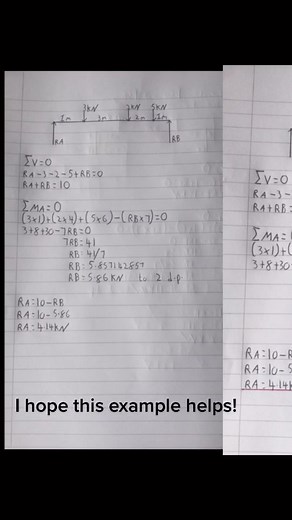 3kN 2kN 5kN
1m 3m 2m 1m
RA RB
ΣV=0
RA-3-2-5+RB=0
RA+RB=10
ΣMA=0
(3×1)+(2×4)+(5×6)-(RB×7)=0
3+8+30-7RB=0
7RB=41
RB=41/7
RB=5.857142857
RB=5.86KN to 2 d.p.
RA=10-RB
RA=10-5.86
RA=4.14KN
ΣV=0
RA-3-
RA+RB=
ΣMA=
(3×1)+(
3+8+30
RA=10-R
RA=10-5
RA=4.14K
I hope this example helps!